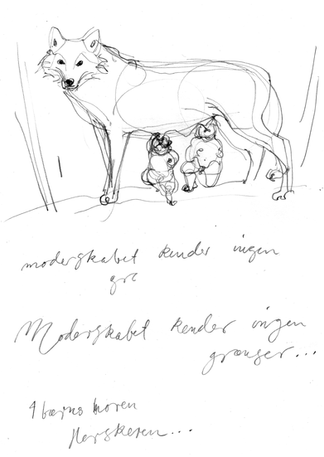 moderskabet kender ingen
gr
Moderskabet kender ingen
grænser...
4 børns moren